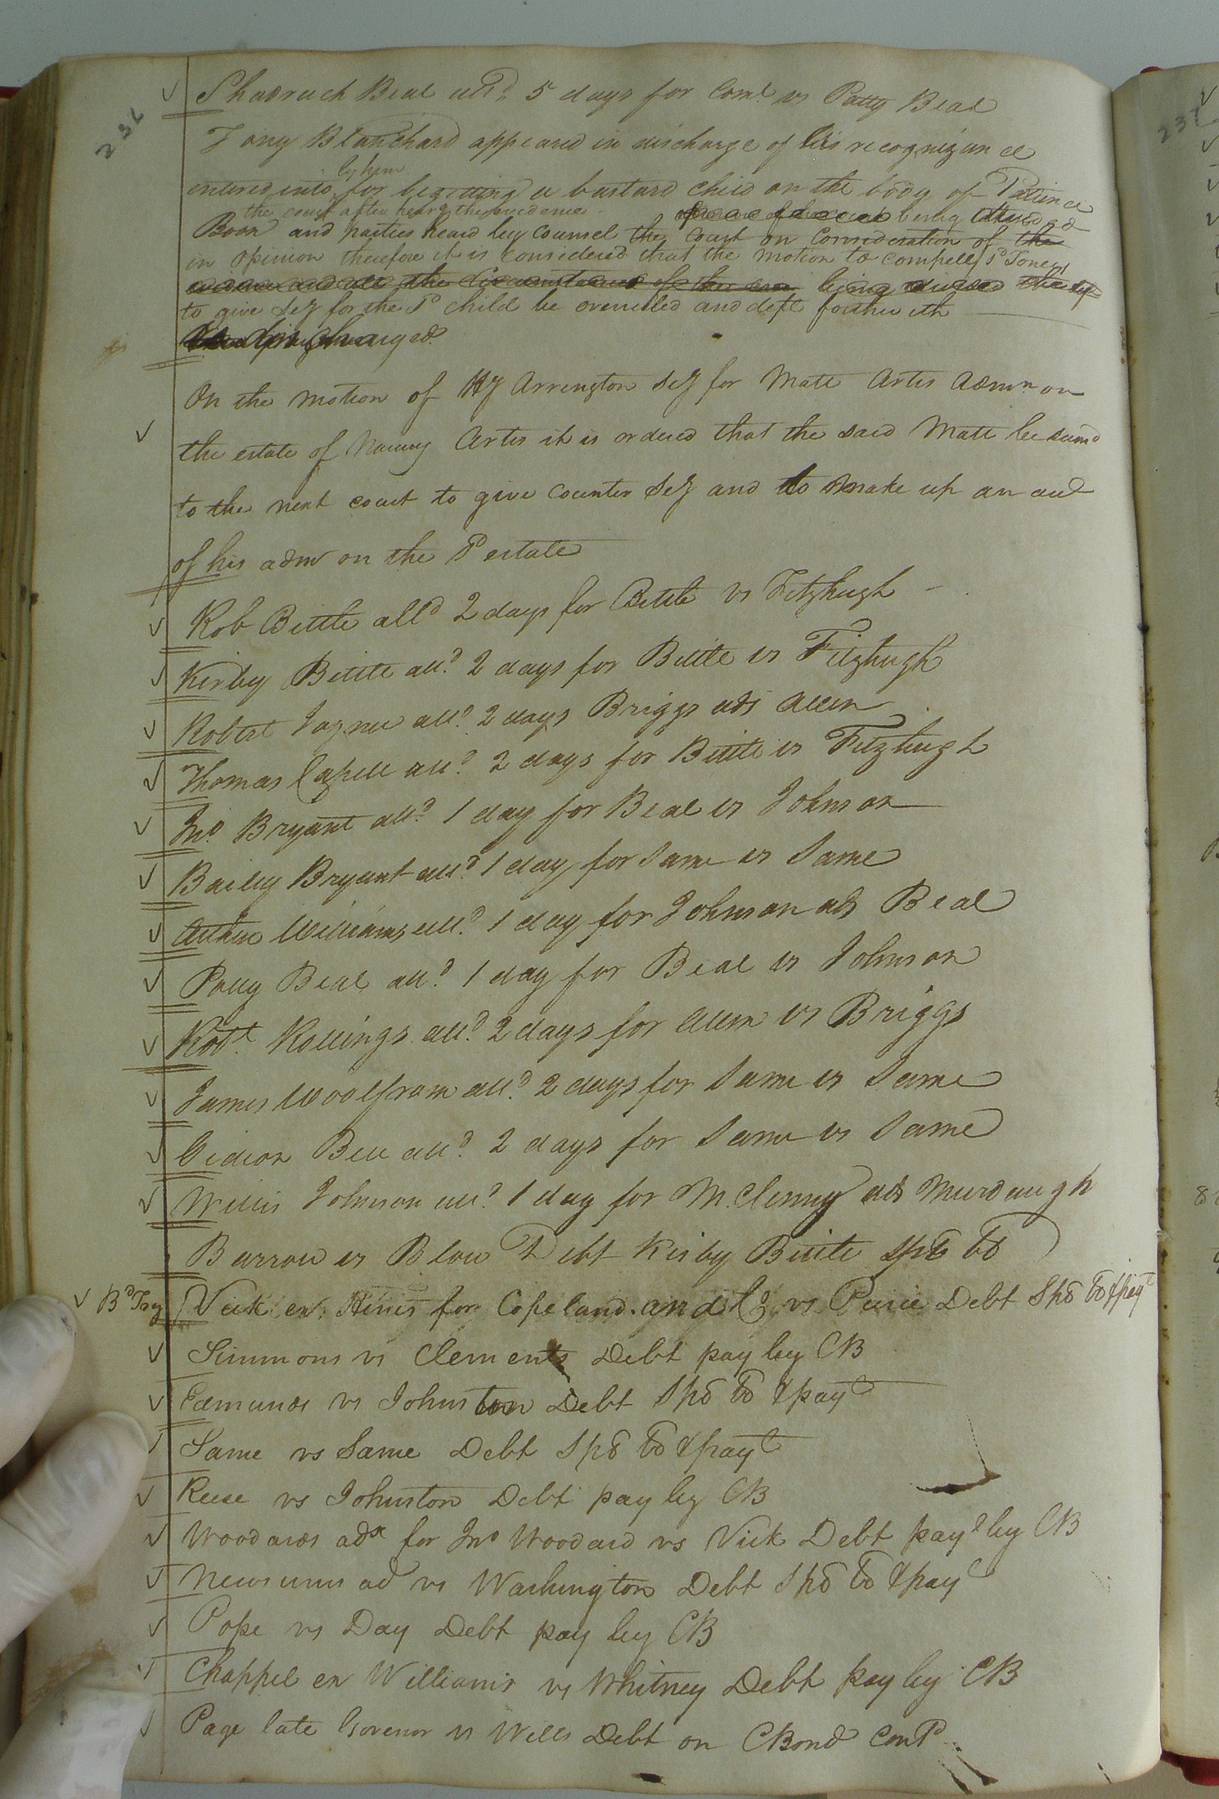 236
Shadrach Beal alld. 5 days for Coml. vs Patty Beal
Tony Blanchard appeared in discharge of his recognizance
by him
entered into for begetting a bastard child on the body of Patience
the court after hearg the evidence being
Boon and parties heard by Counsel the Court on Consideration of the
in opinion therefore it is considered that the motion to compell sd. Toney
the circumstances of the case being
to give Sey for the sd child be overruled and deft forthwith
discharged.
On the motion of Arrington Sey for Matt Artis Admr. on
the estate of Nancy Artis it is ordered that the said Matt be sumd
to the next court to give Counter Sey and to make up an audt
of his adm on the sd estate
Rob Bittle alld 2 days for Bittle vs Fitzhugh
Kirby Bittle alld. 2 days for Bittle vs Fitzhugh
Robert alld. 2 days Briggs ads Allen
Thomas Capell alld. 2 days for Bittle vs Fitzhugh
Jno. Bryant alld. 1 day for Beal vs Johnson
Bailey Bryant alld. 1 day for Same vs Same
Arthur Williams alld. 1 day for Johnson ads Beal
Patty Beal alld. 1 day for Beal vs Johnson
Robt. Rollings alld. 2 days for Allen vs Briggs
James Woolfram alld. 2 days for Same vs Same
Gideon Bell alld. 2 days for Same vs Same
Willis Johnson alld. 1 day for McClenny ads Murdaugh
Barrow vs Blow Debt Kirby Bittle spB bB
Vick ex. Hines for Copeland and Co. vs Debt SpB bB & payt
Simmons vs Clements Debt pay by CB
Edmunds vs Johnston Debt SpB bB & payt
Same vs Same Debt SpB bB & payt
Reese vs Johnston Debt pay by CB
Woodards adx for Jno Woodard vs Vick Debt payt by CB
Newsums ad vs Washington Debt SpB bB & payt
Pope vs Day Debt pay by CB
Chappel ex Williams vs Whitney Debt pay by CB
Page late Govenor vs Wills Debt on CBond Contd.
237